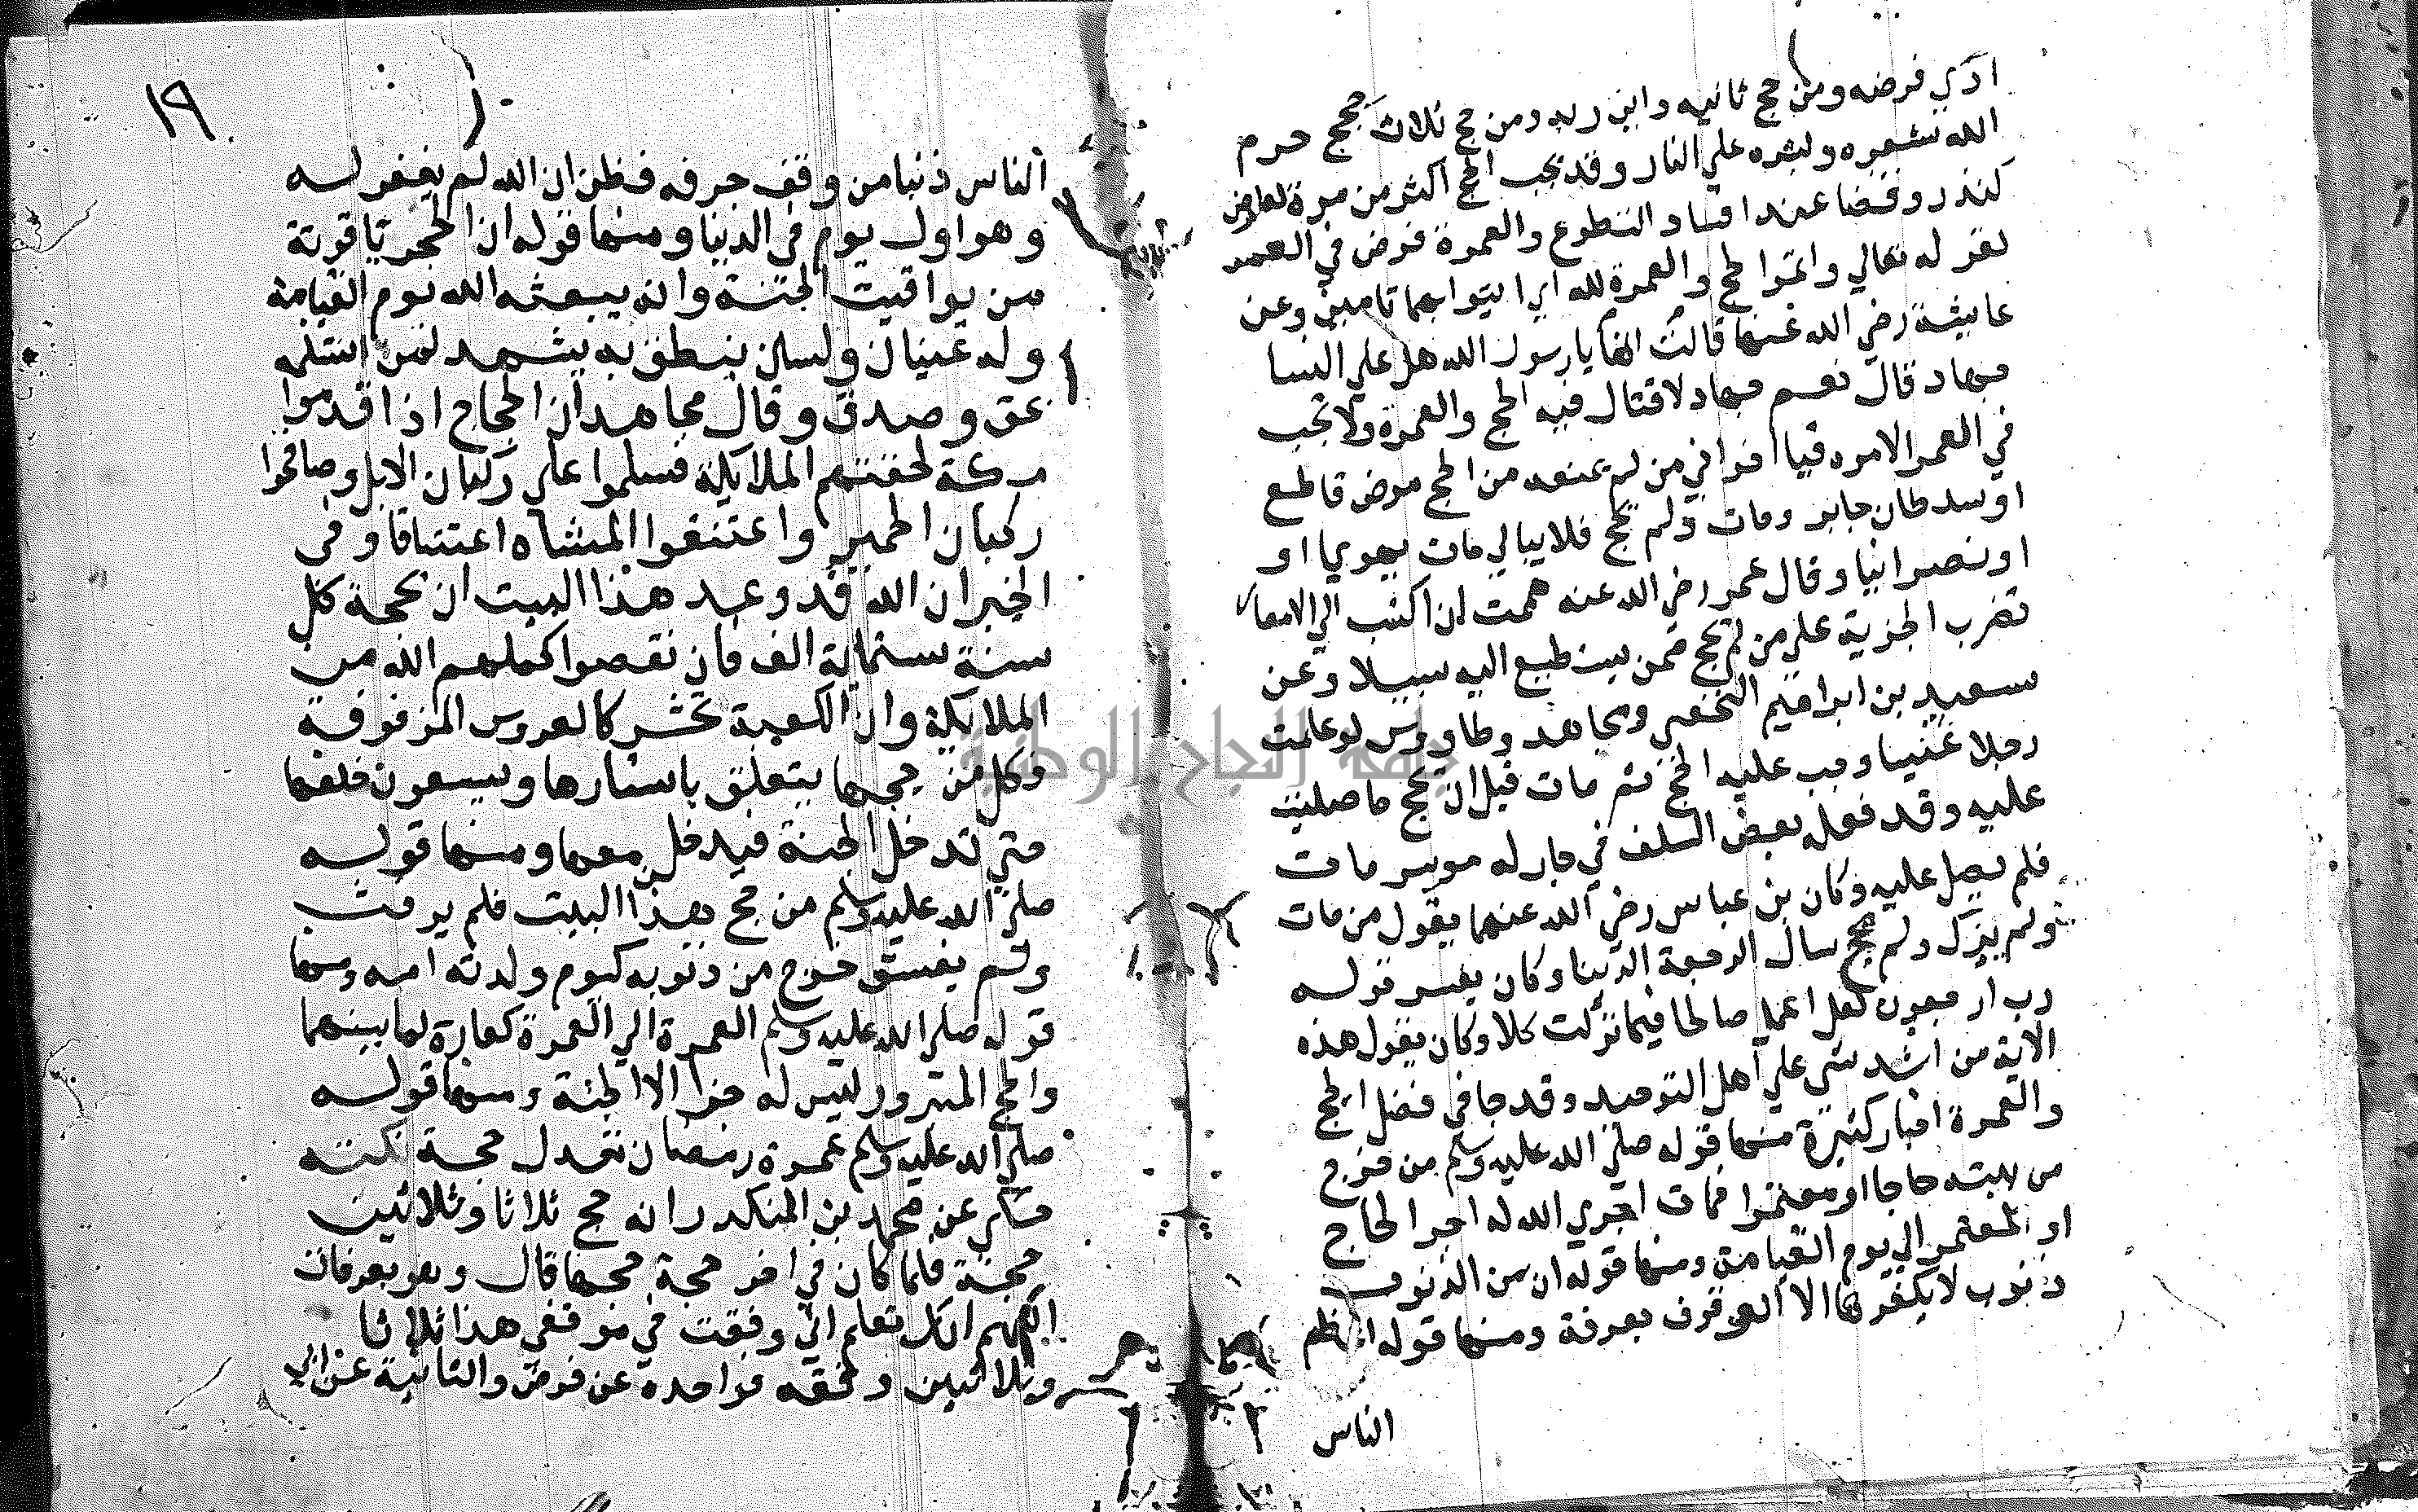 ادي فرضه ومن حج ثانيه داين ربه ومن حج ثلاث حجج حرم
الله شعره وبشره علي النار وقد يجب الحج اكثر من مرة لعارض
كنذر وقضا عند افساد التطوع والعمرة فرض في العمر
لقوله تعالي واتموا الحج والعمرة لله اي ايتوا بهما تامين وعن
عايشة رضي الله عنها قالت انها يا رسول الله هل علي النسا
جهاد قال نعم جهاد لا قتال فيه الحج والعمرة ولا تجب
في العمر الا مره فيا اخواني من لم يمنعه من الحج مرض قاطع
او سلطان جابر ومات ولم يحج فلا يبالي مات يهوديا او
او نصرانيا وقال عمر رضي الله عنه هممت ان اكتب الي الامصار
تضرب الجزية علي من لم يحج ممن يستطيع اليه سبيلا وعن
سعيد بن ابراهيم النخعي ومجاهد وطاووس لو علمت
رجلا غنيا وجب عليه الحج ثم مات قبل ان يحج ما صليت
عليه وقد فعله بعض السلف في جار له موسر مات
فلم يصل عليه وكان بن عباس رضي الله عنهما يقول من مات
ولم يزك ولم يحج سال الرجعة الدنيا وكان يفسر قوله
رب ارجعون لعلي اعمل صالحا فيما تركت كلا وكان يقول هذه
الاية من اشد شي علي اهل التوحيد وقد جا في فضل الحج
والعمرة اخبار كثيرة منها قوله صلي الله عليه وسلم من خرج
من بيته حاجا او معتمرا فمات اجري الله له اجر الحاج
او المعتمر الي يوم القيامة ومنها قوله ان من الذنوب
ذنوب لا يكفرها الا الوقوف بعرفة ومنها قوله اعظم
الناس
١٩
الناس ذنبا من وقف بعرفه فظن ان الله لم يغفر له
وهو اول يوم في الدنيا ومنها قوله ان الحجر ياقوتة
من يواقيت الجنة وانه يبعثه الله يوم القيامة
وله عينان ولسان ينطق به يشهد لمن استلمه
بحق وصدق وقال مجاهد ان الحجاج اذا قدموا
مكة لحقتهم الملايكة فسلموا علي ركبان الابل وصافحوا
ركبان الحمير واعتنقوا المشاه اعتناقا وفي
الخبر ان الله قد وعد هذا البيت ان يحجه كل
سنة ستماية الف فان نقصوا كملهم الله من
الملايكة وان الكعبة تحشر كالعروس المزفوفة
وكل من حجها يتعلق باستارها ويسعون خلفها
حتي تدخل الجنة فيدخل معها ومنها قوله
صلي الله عليه وسلم من حج هذا البيت فلم يرفث
ولم يفسق خرج من ذنوبه كيوم ولدته امه ومنها
قوله صلي الله عليه وسلم العمرة الي العمرة كفارة لما بينهما
والحج المبرور ليس له جزا الا الجنة ومنها قوله
صلي الله عليه وسلم عمرة رمضان تعدل حجة
حكي عن محمد بن المنكدر انه حج ثلاثا وثلاثين
حجة فلما كان في اخر حجة حجها قال وهو بعرفات
اللهم انك تعلم اني وقفت في موقفي هذا ثلاثا
وثلاثين وقفه فواحده عن فرضي والثانية عن ابي
جامعة النجاح الوطنية